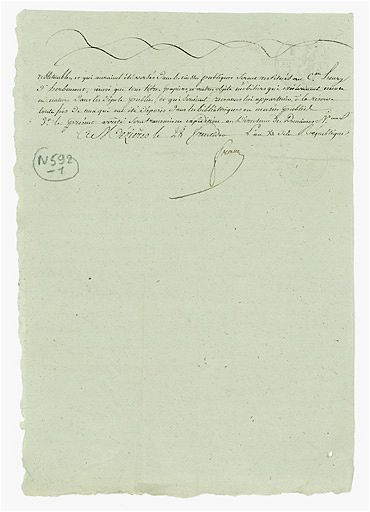 redevables, et qui auraient été versées dans les caisses publiques seront restitués au C.en henry
d'herbemont, ainsi que leurs titres, papiers et autres objets mobiliers qui existeraient encore
en nature dans les dépots publics, et qui seraient reconnus lui appartenir, à la réserve
toute fois de ceux qui ont été déposés dans les bibliothèques ou musées publics
3.º le présent arrêté sera transmis en expédition au Directeur des Domaines N.aux
à Mézières le 28 Fructidor L'an Républicaine
N592
-1